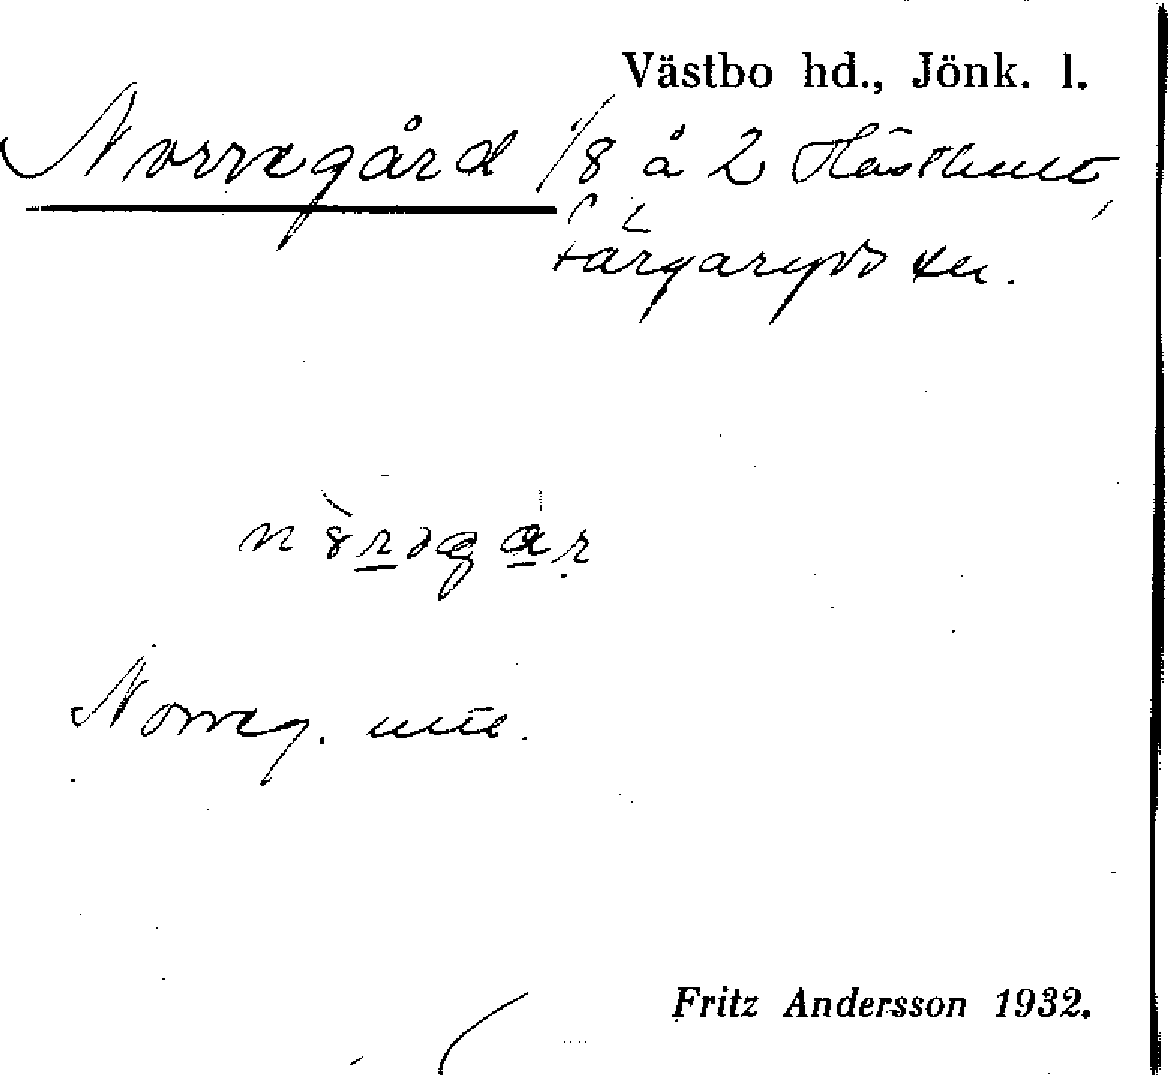 Västbo hd., Jönk. l.
Norregård 1/8 å 2 Hästhult,
Färgaryds sn.
Norreg. ute.
Fritz Andersson 1932.